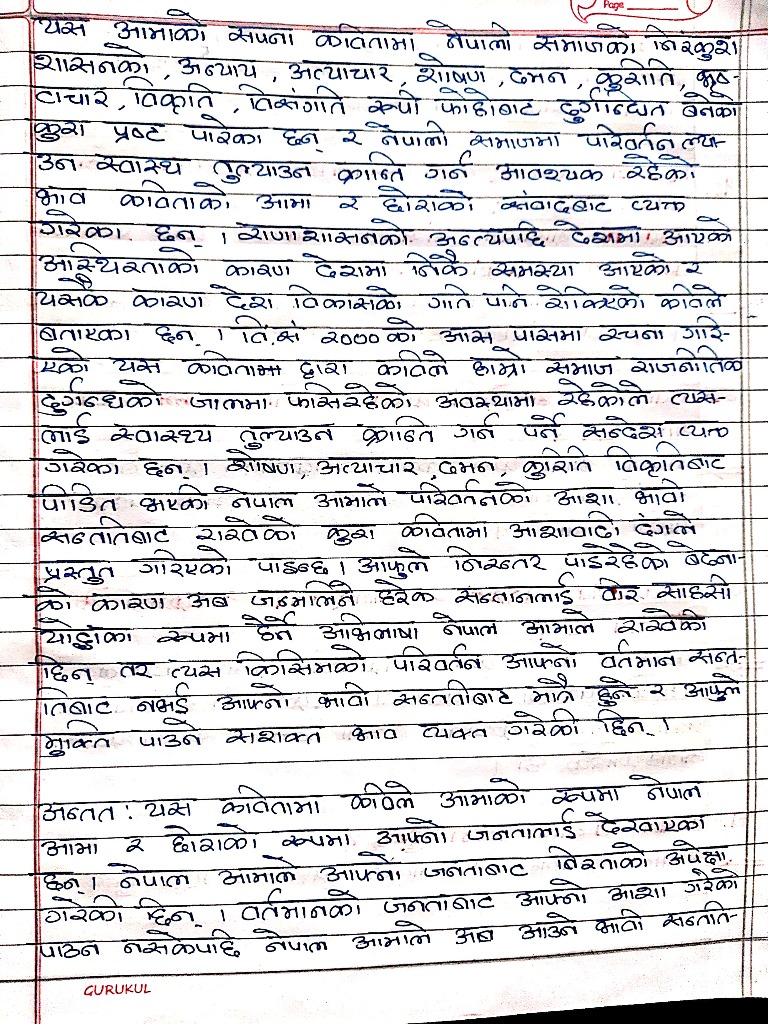 Page
यस आमाको सपना कवितामा नेपाली समाजको निरंकुश
शासनको, अन्याय, अत्याचार, शोषण, दमन, कुरीति, भ्रष्-
टाचार, विकृति, विसंगति रूपी फोहोबाट दुर्गन्धित बनेको
कुरा प्रष्ट पारेका छन् र नेपाली समाजमा परिवर्तन ल्या-
उन स्वास्थ तुल्याउन क्रान्ति गर्न आवश्यक रहेको
भाव कविताको आमा र छोराको संवादबाट व्यक्त
गरेका छन् । राणाशासनको अन्त्यपछि देशमा आएको
अस्थिरताको कारण देशमा निकै समस्या आएको र
यसकै कारण देश विकासको गति पनि रोकिएको कविले
बताएका छन् । वि.सं २००० को आस पासमा रचना गरि-
एको यस कवितामा द्वारा कविले हाम्रो समाज राजनीतिक
दुर्गन्धको जालमा फसिरहेको अवस्थामा रहेकोले त्यस-
लाई स्वास्थ्य तुल्याउन क्रान्ति गर्न पर्ने सन्देश व्यक्त
गरेका छन् । शोषण, अत्याचार, दमन, कुरीति विकृतिबाट
पीडित भएकी नेपाल आमाले परिवर्तनको आशा भावी
सन्ततिबाट राखेको कुरा कवितामा आशावादी ढंगले
प्रस्तुत गरिएको पाइन्छ । आफुले निरन्तर पाइरहेको बेदना-
को कारण अब जन्मलिने हरेक सन्तानलाई वीर साहसी
योद्धाका रूपमा हेर्ने अभिलाषा नेपाल आमाले राखेकी
छिन् तर त्यस किसिमको परिवर्तन आफ्नो वर्तमान सन्त-
तिबाट नभई आफ्नो भावी सन्ततीबाट मात्रै हुने र आफुले
मुक्ति पाउने सशक्त भाव व्यक्त गरेकी छिन् ।
अन्तत: यस कवितामा कविले आमाको रूपमा नेपाल
आमा र छोराको रूपमा आफ्नो जनतालाई देखाएका
छन् । नेपाल आमाले आफ्नो जनताबाट बिरताको अपेक्षा
गरेकी छिन् । वर्तमानको जनताबाट आफ्नो आशा गरेको
पाउन नसकेपछि नेपाल आमाले अब आउने भावी सन्तति-
GURUKUL